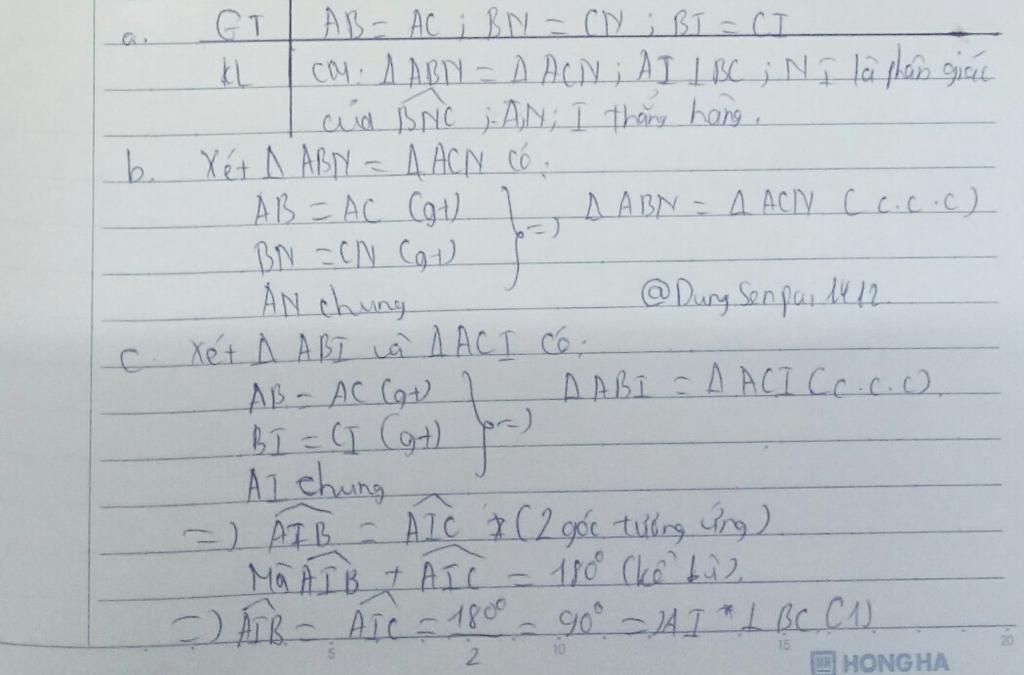 a. GT AB = AC ; BN = CN ; BI = CI
KL CM: Δ ABN = Δ ACN ; AI ⊥ BC ; NI là phân giác
của BNC ; A;N; I thẳng hàng.
b. Xét Δ ABN = Δ ACN có:
AB = AC (gt)
BN = CN (gt)
AN chung
=> Δ ABN = Δ ACN (c.c.c)
@DungSenpai1412
c. Xét Δ ABI và Δ ACI có:
AB = AC (gt)
BI = CI (gt)
AI chung
=> Δ ABI = Δ ACI (c.c.c)
=> AIB = AIC (2 góc tương ứng)
Mà AIB + AIC = 180° (kề bù).
=> AIB = AIC = 180°/2 = 90° => AI ⊥ BC (1)
5 10 15 20
HONG HA